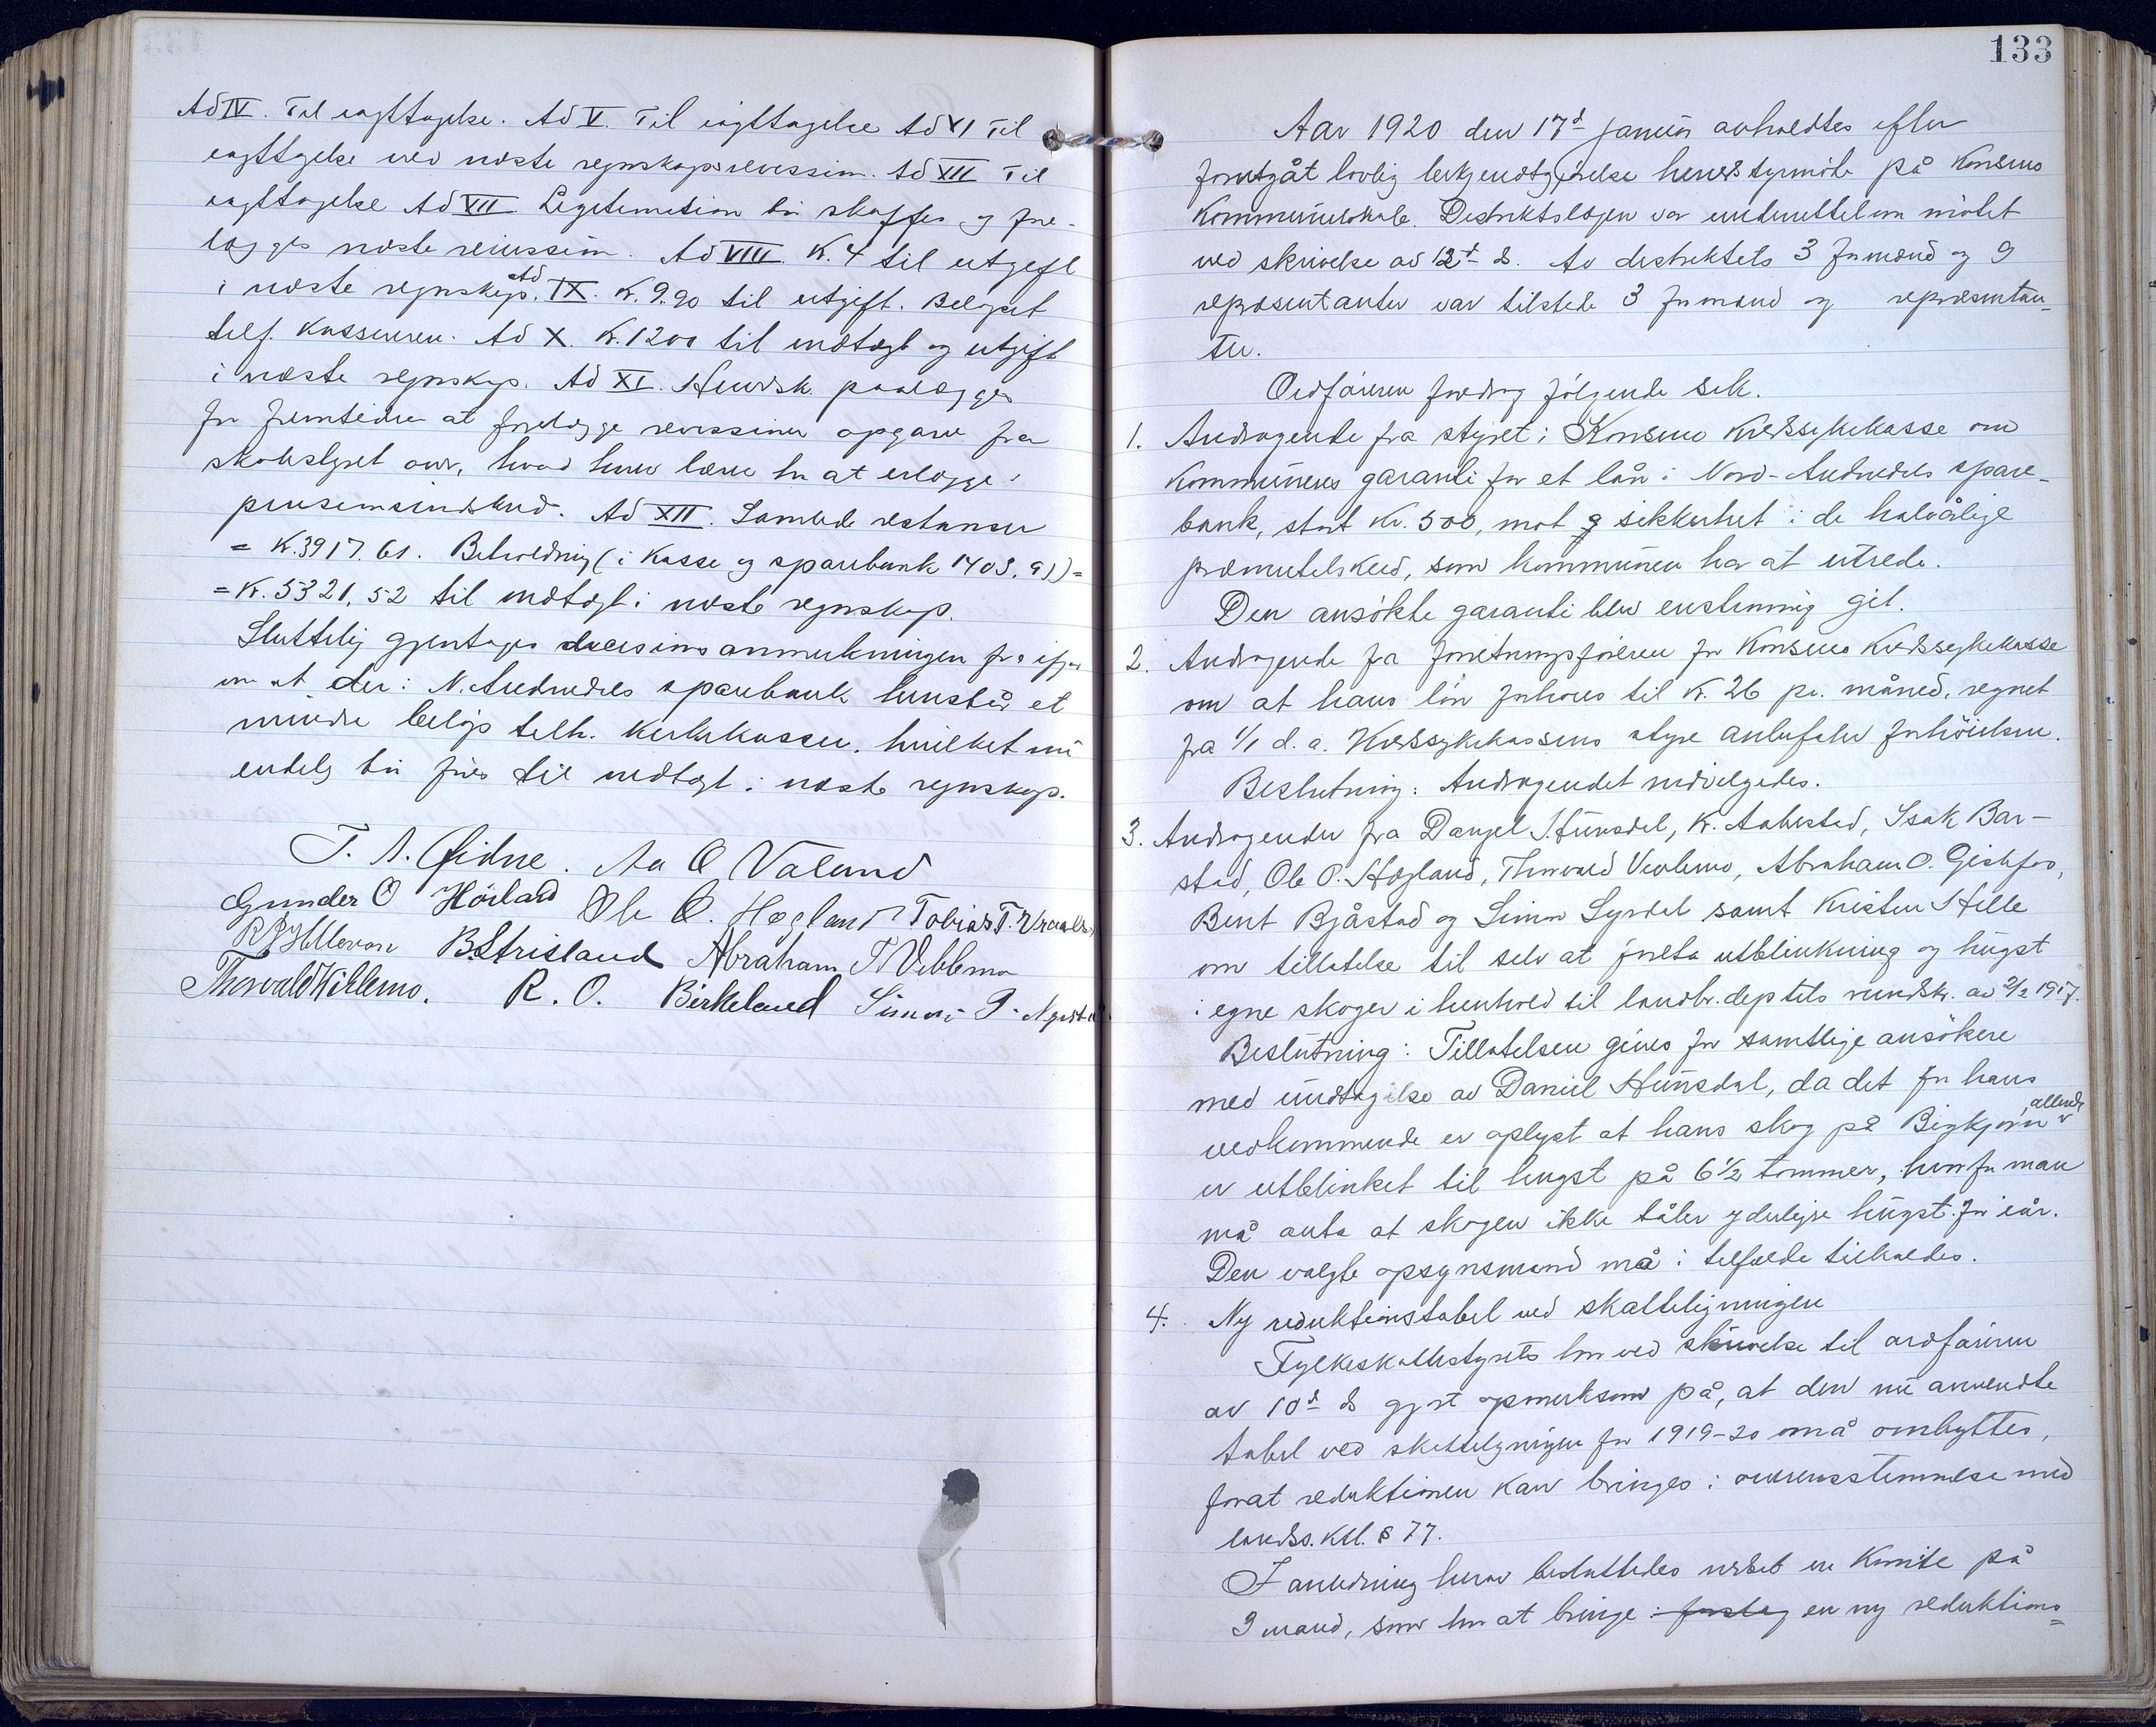 Ad IV. Til iagttagelse. Ad V. Til iagttagelse Ad VI Til
iagttagelse ved næste regnskapsrevission. Ad XII Til
iagttagelse Ad VII Legitimation bør skaffes og fore-
lægges næste revission. Ad VIII. Kr. 4 til utgift
i næste regnskap. Ad IX. Kr. 9.90 til utgift. Beløpet
telf. Kassereren. Ad X. Kr. 1200 til indtægt og utgift
i næste regnskap. Ad XI. Herredsk. paalægges
for fremtiden at forelægge revissionen opgave fra
skolestyret over, hvad hver lærer har at erlægge i
pensionsindskud. Ad XII. Samlede restanser
= Kr. 3917.61. Beholdning (i Kasse og sparebank 1403,91) =
= Kr. 5321,52 til indtægt i næste regnskap.
Sluttelig gjentages decisionsanmerkningen fra ifjor
om at der i N. Audnedals sparebank henstår et
mindre beløp telh. Kirkekassen. hvilket nu
endelig bør føres til indtægt i næste regnskap.
T. A. Øidne. Aa O Valand
Gunder O Höiland Ole O. Høgland Tobias T.
B. Strisland Abraham T Veblemo
Thorvald Viblemo. R. O. Birkeland Simon P.
133
Aar 1920 den 17d januar avholdtes efter
forutgåt lovlig bekjendtgjørelse herredstyrmöte på Konsmo
Kommunelokale. Distriktslægen var underrettet om mötet
ved skrivelse av 12t ds. Av distriktets 3 formænd og 9
repræsentanter var tilstede 3 formænd og repræsentan-
ter.
Ordföreren foredrog fölgende sak.
1. Andragende fra styret i Konsmo Kredssykekasse om
Kommunens garanti for et lån i Nord-Audnedals spare-
bank, stort Kr. 500, mot sikkerhet i de halvårlige
præmietilskud, som kommunen har at utrede.
Den ansökte garanti blev enstemmig git.
2. Andragende fra forretningsföreren for Konsmo Kredssykekasse
om at hans lön forhöies til Kr. 26 pr. måned, regnet
fra 1/1 d. a. Kredssykekassens styre anbefaler forhöielsen.
Beslutning: Andragendet indvilgedes.
3. Andragender fra Daniel Hunsdal, K. Aabestad, Isak Bar-
stad, Ole O. Høgland, Thorvald Veblemo, Abraham O.
Bent Bjåstad og Simon Lyrdal samt Kristen Stille
om tillatelse til selv at foreta utblinkning og hugst
i egne skoger i henhold til landbr. deptets rundskr. av 2/2 1917.
Beslutning: Tillatelsen gives for samtlige ansökere
med undtagelse av Daniel Hunsdal, da det for hans
vedkommende er oplyst at hans skog på Bigkjørn allerede
er utblinket til hugst på 6 1/2 tommer, hvorfor man
må anta at skogen ikke tåler yderligere hugst for iår.
Den valgte opsynsmand må i tilfælde tilkaldes.
4. Ny reduktionstabel ved skatteligningen
Fylkeskattestyrets har ved skrivelse til ordföreren
av 10d ds gjort opmerksom på, at den nu anvendte
tabel ved skatteligningen for 1919-20 må ombyttes,
forat reduktionen kan bringes i overensstemmelse med
landsskl. § 77.
I anledning herav besluttedes nedsat en Komite på
3 mand, som har at bringe i forslag en ny reduktions=